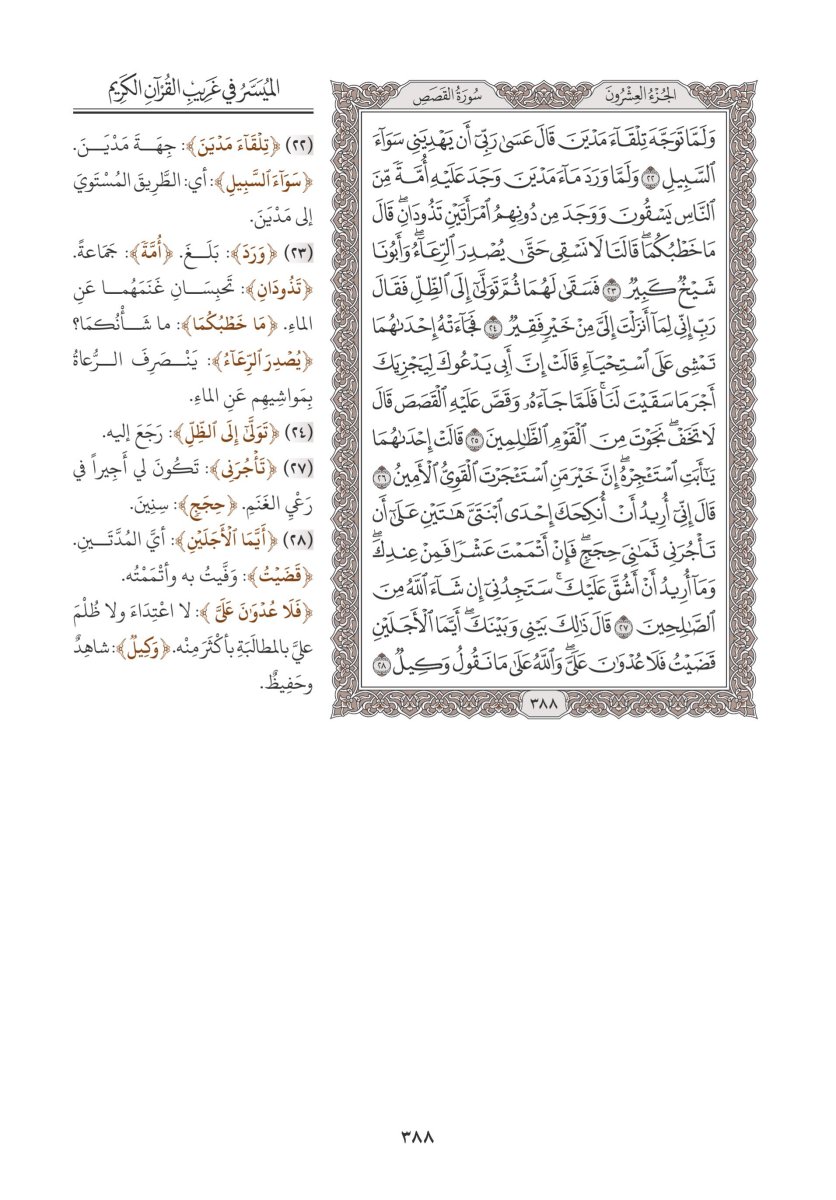 الجُزْءُ العِشْرُونَ
سُورَةُ القَصَصِ
وَلَمَّا تَوَجَّهَ تِلۡقَآءَ مَدۡيَنَ قَالَ عَسَىٰ رَبِّيٓ أَن يَهۡدِيَنِي سَوَآءَ
ٱلسَّبِيلِ ٢٢ وَلَمَّا وَرَدَ مَآءَ مَدۡيَنَ وَجَدَ عَلَيۡهِ أُمَّةٗ مِّنَ
ٱلنَّاسِ يَسۡقُونَ وَوَجَدَ مِن دُونِهِمُ ٱمۡرَأَتَيۡنِ تَذُودَانِۖ قَالَ
مَا خَطۡبُكُمَاۖ قَالَتَا لَا نَسۡقِي حَتَّىٰ يُصۡدِرَ ٱلرِّعَآءُۖ وَأَبُونَا
شَيۡخٞ كَبِيرٞ ٢٣ فَسَقَىٰ لَهُمَا ثُمَّ تَوَلَّىٰٓ إِلَى ٱلظِّلِّ فَقَالَ
رَبِّ إِنِّي لِمَآ أَنزَلۡتَ إِلَيَّ مِنۡ خَيۡرٖ فَقِيرٞ ٢٤ فَجَآءَتۡهُ إِحۡدَىٰهُمَا
تَمۡشِي عَلَى ٱسۡتِحۡيَآءٖ قَالَتۡ إِنَّ أَبِي يَدۡعُوكَ لِيَجۡزِيَكَ
أَجۡرَ مَا سَقَيۡتَ لَنَاۚ فَلَمَّا جَآءَهُۥ وَقَصَّ عَلَيۡهِ ٱلۡقَصَصَ قَالَ
لَا تَخَفۡۖ نَجَوۡتَ مِنَ ٱلۡقَوۡمِ ٱلظَّٰلِمِينَ ٢٥ قَالَتۡ إِحۡدَىٰهُمَا
يَٰٓأَبَتِ ٱسۡتَـٔۡجِرۡهُۖ إِنَّ خَيۡرَ مَنِ ٱسۡتَـٔۡجَرۡتَ ٱلۡقَوِيُّ ٱلۡأَمِينُ ٢٦
قَالَ إِنِّيٓ أُرِيدُ أَنۡ أُنكِحَكَ إِحۡدَى ٱبۡنَتَيَّ هَٰتَيۡنِ عَلَىٰٓ أَن
تَأۡجُرَنِي ثَمَٰنِيَ حِجَجٖۖ فَإِنۡ أَتۡمَمۡتَ عَشۡرٗا فَمِنۡ عِندِكَۖ
وَمَآ أُرِيدُ أَنۡ أَشُقَّ عَلَيۡكَۚ سَتَجِدُنِيٓ إِن شَآءَ ٱللَّهُ مِنَ
ٱلصَّٰلِحِينَ ٢٧ قَالَ ذَٰلِكَ بَيۡنِي وَبَيۡنَكَۖ أَيَّمَا ٱلۡأَجَلَيۡنِ
قَضَيۡتُ فَلَا عُدۡوَٰنَ عَلَيَّۖ وَٱللَّهُ عَلَىٰ مَا نَقُولُ وَكِيلٞ ٢٨
٣٨٨
المُيَسَّرُ في غَرِيبِ القُرْآنِ الكَرِيم
(٢٢) ﴿تِلۡقَآءَ مَدۡيَنَ﴾: جِهَةَ مَدْيَنَ.
﴿سَوَآءَ ٱلسَّبِيلِ﴾: أي: الطَّرِيقَ المُسْتَوِيَ
إلى مَدْيَنَ.
(٢٣) ﴿وَرَدَ﴾: بَلَغَ. ﴿أُمَّةٗ﴾: جَمَاعةً.
﴿تَذُودَانِ﴾: تَحبِسَانِ غَنَمَهُما عَنِ
الماءِ. ﴿مَا خَطۡبُكُمَا﴾: ما شَأْنُكمَا؟
﴿يُصۡدِرَ ٱلرِّعَآءُ﴾: يَنْصَرِفَ الرُّعاةُ
بِمَواشِيهِم عَنِ الماءِ.
(٢٤) ﴿تَوَلَّىٰٓ إِلَى ٱلظِّلِّ﴾: رَجَعَ إليه.
(٢٧) ﴿تَأۡجُرَنِي﴾: تَكُونَ لي أَجِيراً في
رَعْيِ الغَنَمِ. ﴿حِجَجٖ﴾: سِنِينَ.
(٢٨) ﴿أَيَّمَا ٱلۡأَجَلَيۡنِ﴾: أيَّ المُدَّتَينِ.
﴿قَضَيۡتُ﴾: وَفَّيتُ به وأتْمَمْتُه.
﴿فَلَا عُدۡوَٰنَ عَلَيَّ﴾: لا اعْتِدَاءَ ولا ظُلْمَ
عليَّ بالمطالَبَةِ بأكْثَرَ مِنْه. ﴿وَكِيلٞ﴾: شاهِدٌ
وحَفِيظٌ.
٣٨٨